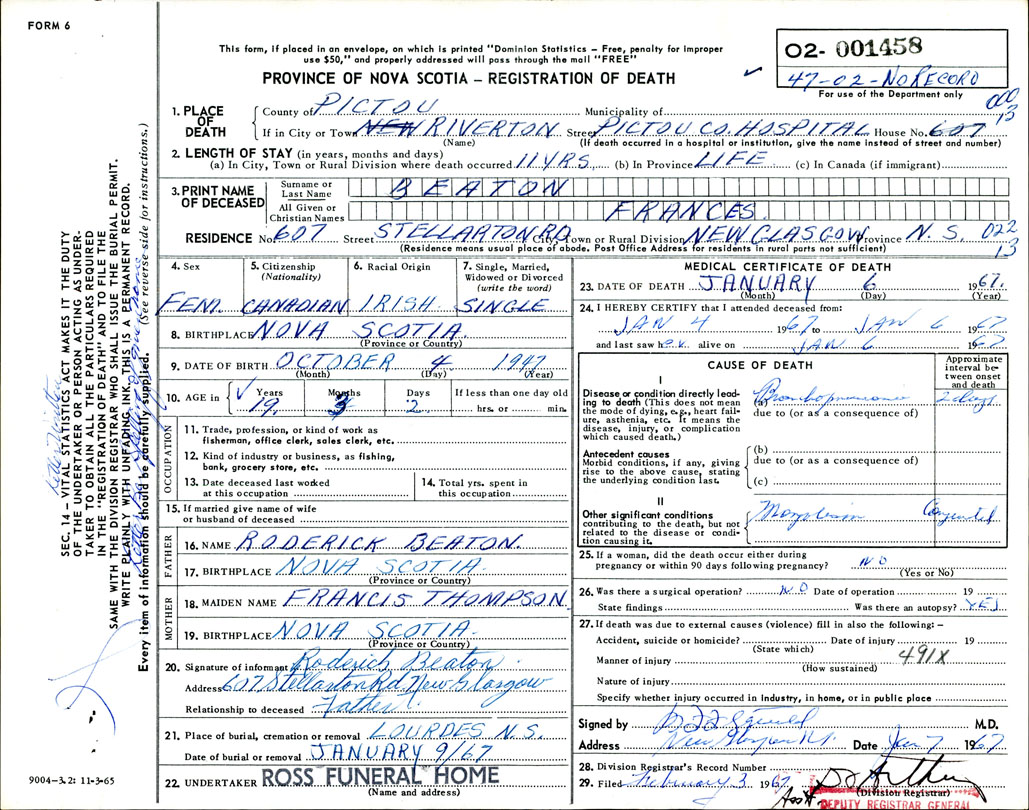 FORM 6
This form, if placed in an envelope, on which is printed "Dominion Statistics – Free, penalty for improper
use $50," and properly addressed will pass through the mail "FREE"
PROVINCE OF NOVA SCOTIA – REGISTRATION OF DEATH
02- 001458
47-02-NO RECORD
For use of the Department only
000
13
1. PLACE OF DEATH
County of PICTOU Municipality of
If in City or Town NEW RIVERTON Street PICTOU CO. HOSPITAL House No. 607
(Name) (If death occurred in a hospital or institution, give the name instead of street and number)
2. LENGTH OF STAY (in years, months and days)
(a) In City, Town or Rural Division where death occurred 11 YRS. (b) In Province LIFE (c) In Canada (if immigrant)
3. PRINT NAME OF DECEASED
Surname or Last Name BEATON
All Given or Christian Names FRANCES
RESIDENCE No. 607 Street STELLARTON RD. City, Town or Rural Division NEW GLASGOW Province N.S. 022
13
(Residence means usual place of abode. Post Office Address for residents in rural parts not sufficient)
4. Sex
FEM.
5. Citizenship (Nationality)
CANADIAN
6. Racial Origin
IRISH
7. Single, Married, Widowed or Divorced (write the word)
SINGLE
8. BIRTHPLACE NOVA SCOTIA
(Province or Country)
9. DATE OF BIRTH OCTOBER 4 1947
(Month) (Day) (Year)
10. AGE in Years 19. Months 3 Days 2 If less than one day old
hrs. or min.
OCCUPATION
11. Trade, profession, or kind of work as
fisherman, office clerk, sales clerk, etc.
12. Kind of industry or business, as fishing,
bank, grocery store, etc.
13. Date deceased last worked
at this occupation
14. Total yrs. spent in
this occupation
15. If married give name of wife
or husband of deceased
FATHER
16. NAME RODERICK BEATON.
17. BIRTHPLACE NOVA SCOTIA
(Province or Country)
MOTHER
18. MAIDEN NAME FRANCIS THOMPSON
19. BIRTHPLACE NOVA SCOTIA
(Province or Country)
20. Signature of informant Roderick Beaton
Address 607 Stellarton Rd. New Glasgow
Relationship to deceased Father
21. Place of burial, cremation or removal LOURDES N.S.
Date of burial or removal JANUARY 9/67
22. UNDERTAKER ROSS FUNERAL HOME
(Name and address)
MEDICAL CERTIFICATE OF DEATH
23. DATE OF DEATH JANUARY 6 1967.
(Month) (Day) (Year)
24. I HEREBY CERTIFY that I attended deceased from:
JAN 4 1967 to JAN 6 1967
and last saw her alive on JAN 6 1967
CAUSE OF DEATH
Approximate interval between onset and death
I
Disease or condition directly leading to death (This does not mean the mode of dying, e.g., heart failure, asthenia, etc. It means the disease, injury, or complication which caused death.)
(a) Bronchopneumonia 2 days
due to (or as a consequence of)
Antecedent causes
Morbid conditions, if any, giving rise to the above cause, stating the underlying condition last.
(b)
due to (or as a consequence of)
(c)
II
Other significant conditions contributing to the death, but not related to the disease or condition causing it.
Mongolism Congenital
25. If a woman, did the death occur either during
pregnancy or within 90 days following pregnancy? NO
(Yes or No)
26. Was there a surgical operation? NO Date of operation 19
State findings Was there an autopsy? YES
27. If death was due to external causes (violence) fill in also the following: –
Accident, suicide or homicide? Date of injury 19
(State which)
Manner of injury 491X
(How sustained)
Nature of injury
Specify whether injury occurred in industry, in home, or in public place
Signed by M.D.
Address New Glasgow N.S. Date Jan 7 1967
28. Division Registrar's Record Number
29. Filed February 3 1967
(Division Registrar)
Ass't DEPUTY REGISTRAR GENERAL
SEC. 14 – VITAL STATISTICS ACT MAKES IT THE DUTY
OF THE UNDERTAKER OR PERSON ACTING AS UNDER-
TAKER TO OBTAIN ALL THE PARTICULARS REQUIRED
IN THE "REGISTRATION OF DEATH" AND TO FILE THE
SAME WITH THE DIVISION REGISTRAR WHO SHALL ISSUE THE BURIAL PERMIT.
WRITE PLAINLY WITH UNFADING INK. THIS IS A PERMANENT RECORD.
Every item of information should be carefully supplied. (See reverse side for instructions.)
9004-3.2: 11-3-65